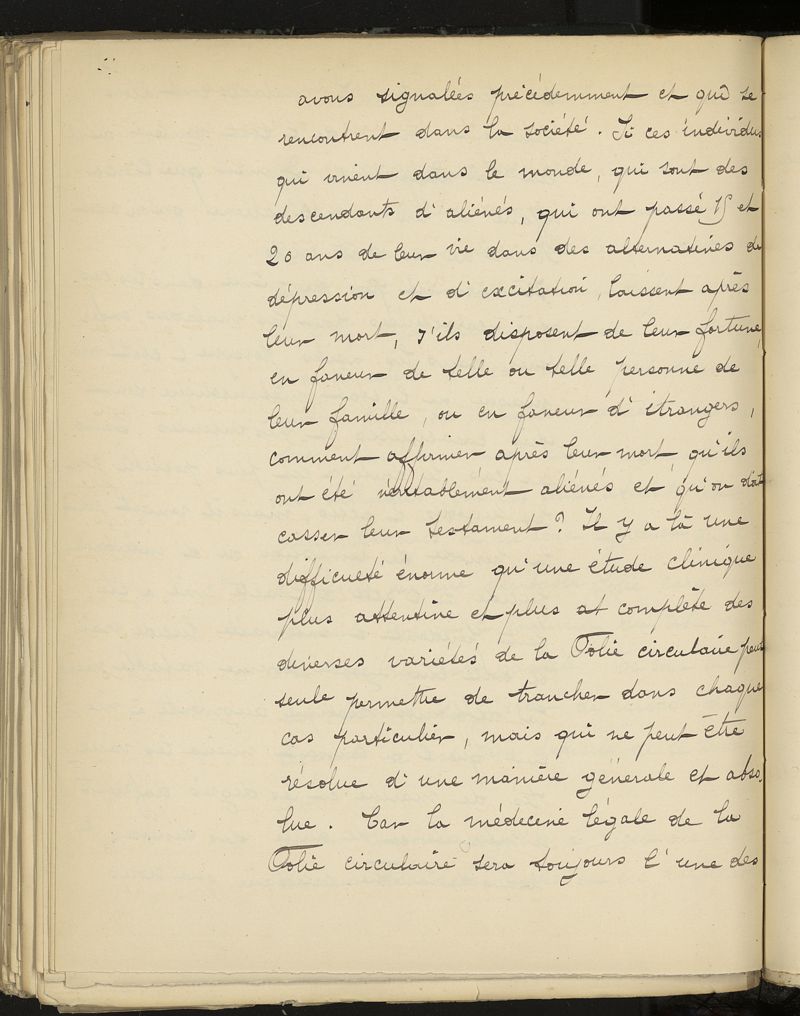 avons signalées précédemment et qui se
rencontrent dans la société. Si ces individus
qui vivent dans le monde, qui sont des
descendants d'aliénés, qui ont passé 15 et
20 ans de leur vie dans des alternatives de
dépression et d'excitation, laissent après
leur mort, s'ils disposent de leur fortune,
en faveur de telle ou telle personne de
leur famille, ou en faveur d'étrangers,
comment affirmer après leur mort qu'ils
ont été véritablement aliénés et qu'on doit
casser leur testament? Il y a là une
difficulté énorme qu'une étude clinique
plus attentive et plus at complète des
diverses variétés de la Folie circulaire peut
seule permettre de trancher dans chaque
cas particulier, mais qui ne peut être
résolue d'une manière générale et abso-
lue. Car la médecine légale de la
Folie circulaire sera toujours l'une des